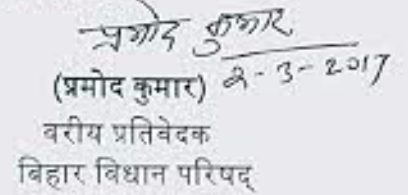 प्रमोद कुमार
(प्रमोद कुमार) 2-3-2017
वरीय प्रतिवेदक
बिहार विधान परिषद्